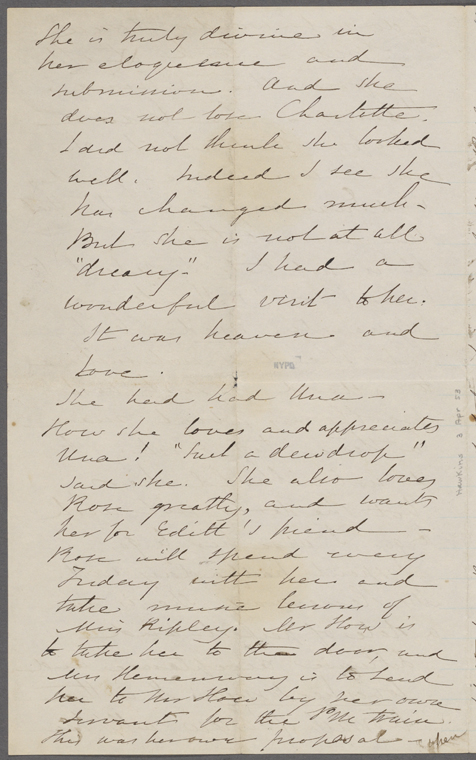 She is truly divine in
her eloquence and
submission. And she
does not lose Charlotte.
I did not think she looked
well. Indeed I see she
has changed much –
But she is not at all
"dreary." I had a
wonderful visit to her.
It was heaven and
Love.
NYPL
She had had Una –
How she loves and appreciates
Una! "Such a dewdrop"
said she. She also loves
Rose greatly, and wants
her for Edith's friend –
Rose will spend every
Friday with her and
take music lessons of
Miss Ripley. Mr How is
to take her to the door, and
Mrs Hemenway is to send
her to Mr How by her own
servant for the PM train.
This was her own proposal –
Hawkins 3 Apr 53